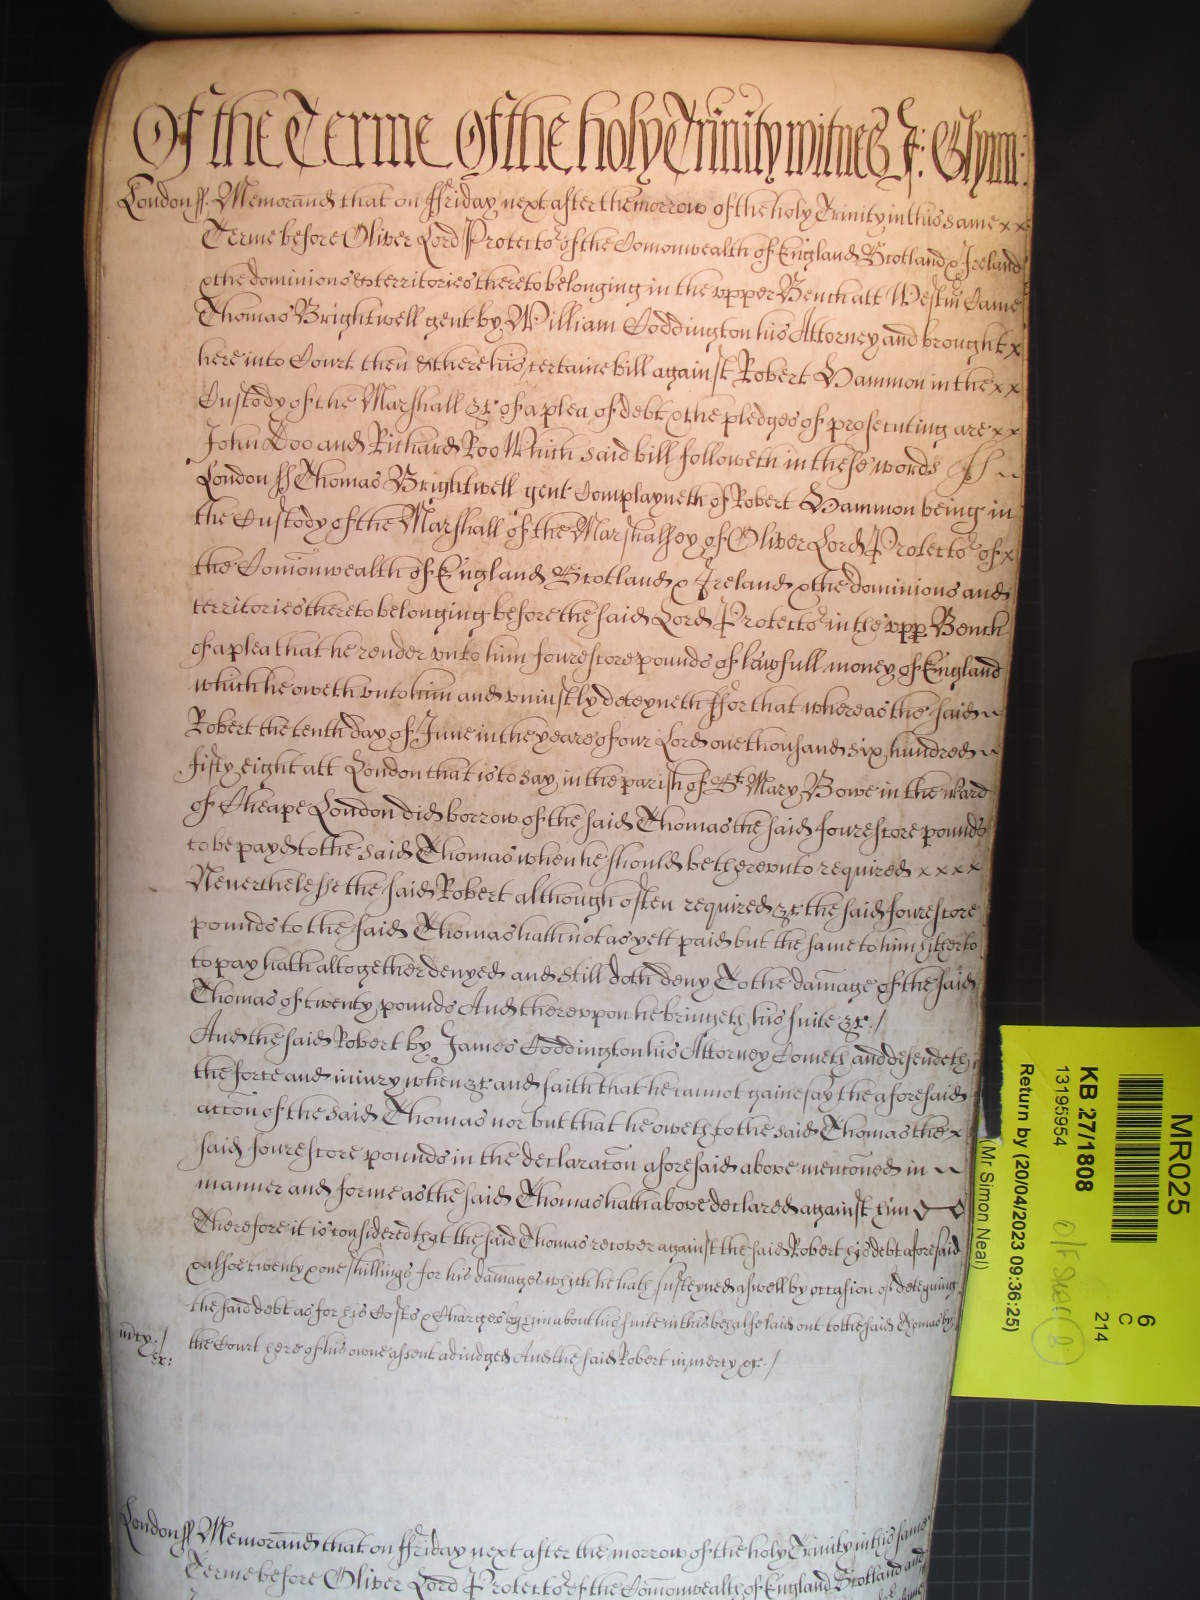 Of the Terme Of the holy Trinity witnes J: Glynn:
London ss. Memorand that on ffriday next after the morrow of the holy Trinity in this same x x
Terme before Oliver Lord Protector of the Comonwealth of England Scotland & Ireland
& the dominions & territories thereto belonging in the upper Bench att Westm Came
Thomas Brightwell gent by William Coddington his Attorney and brought x
here into Court then & there his certaine bill against Robert Hammon in the x x
Custody of the Marshall &c of a plea of debt & the pledges of prosecuting are x x
John Doo and Richard Roo Which said bill followeth in these words ss
London ss Thomas Brightwell gent Complayneth of Robert Hammon being in
the Custody of the Marshall of the Marshalsey of Oliver Lord Protector of x
the Comonwealth of England Scotland & Ireland & the dominions and
territories thereto belonging before the said Lord Protector in the upp Bench
of a plea that he render unto him fourescore pounds of lawfull money of England
which he oweth unto him and uniustly deteyneth ffor that whereas the said
Robert the tenth day of June in the yeare of our Lord one thousand six hundred
fifty eight att London that is to say in the parish of St Mary Bowe in the Ward
of Cheape London did borrow of the said Thomas the said fourescore pounds
to be payd to the said Thomas when he should be thereunto required x x x x
Neverthelesse the said Robert although often required &c the said fourescore
pounds to the said Thomas hath not as yett paid but the same to him hitherto
to pay hath altogether denyed and still doth deny To the damage of the said
Thomas of twenty pounds And thereupon he bringeth his suite &c. /
And the said Robert by James Coddington his Attorney Cometh and defendeth
the force and iniury when &c and saith that he cannot gainesay the aforesaid
accon of the said Thomas nor but that he oweth to the said Thomas the x
said fourescore pounds in the declaracon aforesaid above menconed in
manner and forme as the said Thomas hath above declared against him
Therefore it is considered that the said Thomas recover against the said Robert his debt aforesaid
& alsoe twenty & one shillings for his damages which he hath susteyned aswell by occasion of deteyning
the said debt as for his Costs & Charges by him about his suite in this behalfe laid out to the said Thomas by
the Court here of his owne assent adiudged And the said Robert in mercy &c. /
mcy. /
ex:
London ss Memorand that on ffriday next after the morrow of the holy Trinity in this same
Terme before Oliver Lord Protector of the Comonwealth of England Scotland and
MR025
6
C
214
KB 27/1808
13195954
Return by (20/04/2023 09:36:25)
(Mr Simon Neal)